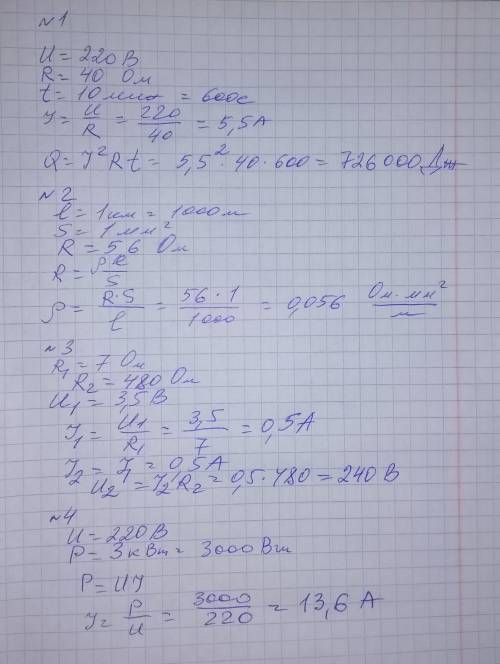 №1
U = 220 В
R = 40 Ом
t = 10 мин = 600с
I = U/R = 220/40 = 5,5 А
Q = I²Rt = 5,5² · 40 · 600 = 726000 Дж
№2
l = 1 км = 1000 м
S = 1 мм²
R = 56 Ом
R = ρl/S
ρ = R·S/l = 56·1/1000 = 0,056 Ом·мм²/м
№3
R₁ = 7 Ом
R₂ = 480 Ом
U₁ = 3,5 В
I₁ = U₁/R₁ = 3,5/7 = 0,5 А
I₂ = I₁ = 0,5 А
U₂ = I₂R₂ = 0,5 · 480 = 240 В
№4
U = 220 В
P = 3 кВт = 3000 Вт
P = UI
I = P/U = 3000/220 = 13,6 А